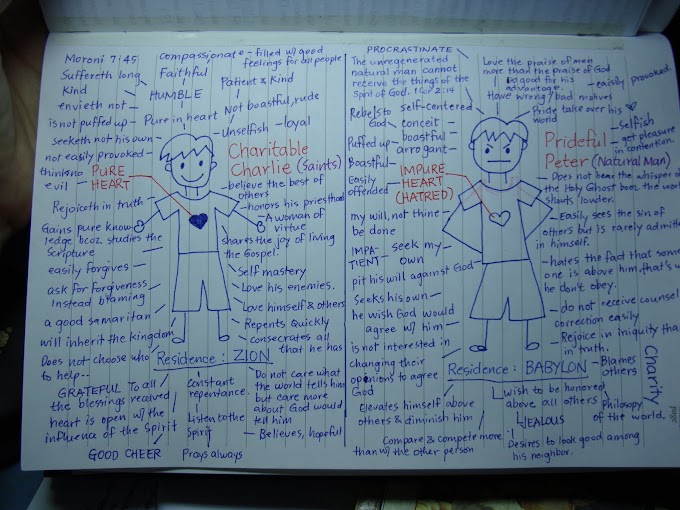 Moroni 7:45
Suffereth long
Kind
envieth not
is not puffed up
seeketh not his own
not easily provoked
thinking no
evil
Rejoiceth in truth
Gains pure know
ledge bcoz studies the
Scripture
easily forgives
ask for forgiveness
Instead blaming
a good samaritan
will inherit the kingdom
Does not choose who
to help--
GRATEFUL To all
the blessings received
heart is open w/ the
influence of the Spirit
GOOD CHEER
compassionate - filled w/ good
feelings for all people
Faithful
HUMBLE
Patient & Kind
Pure in heart
Not boastful, rude
Unselfish - loyal
PURE
HEART
Charitable
Charlie (Saints)
believe the best of
others
honors his priesthood
A woman of
virtue
shares the joy of living
the Gospel.
Self mastery
Love his enemies.
Love himself & others
Repents Quickly
consecrates all
that he has
Residence: ZION
Constant
repentance.
Listen to the
Spirit
Prays always
Do not care what
the world tells him
but care more
about God would
tell him
Believes, hopeful
PROCRASTINATE
The unregenerated
natural man cannot
receive the things of the
Spirit of God. 1 Cor 2:14
Rebels to
God
self-centered
conceit
Puffed up
boastful
arrogant
Boastful
Easily
offended
IMPURE
HEART
(HATRED)
my will, not thine
be done
IMPA
TIENT
seek my
own
pit his will against God
Seeks his own
he wish God would
agree w/ him
is not interested in
changing their
opinions to agree
God
Elevates himself above
others & diminish him
Compare & compete more
than w/ the other person
Love the praise of men
more than the praise of God
Do good for his
advantage.
easily provoked
Have wrong/bad motives
Pride take over his
world
Selfish
get pleasure
in contention.
Prideful
Peter (Natural Man)
Does not hear the whisper of
the Holy Ghost bcoz the world
shouts louder.
Easily sees the sin of
others but is rarely admitted
in himself.
hates the fact that some
one is above him, that's w
he don't obey.
do not receive counsel
correction easily
Rejoice in iniquity than
in truth.
Residence: BABYLON
Blames
others
wish to be honored
above all others
Philosopy
of the world.
JEALOUS
Desires to look good among
his neighbor.
Charity